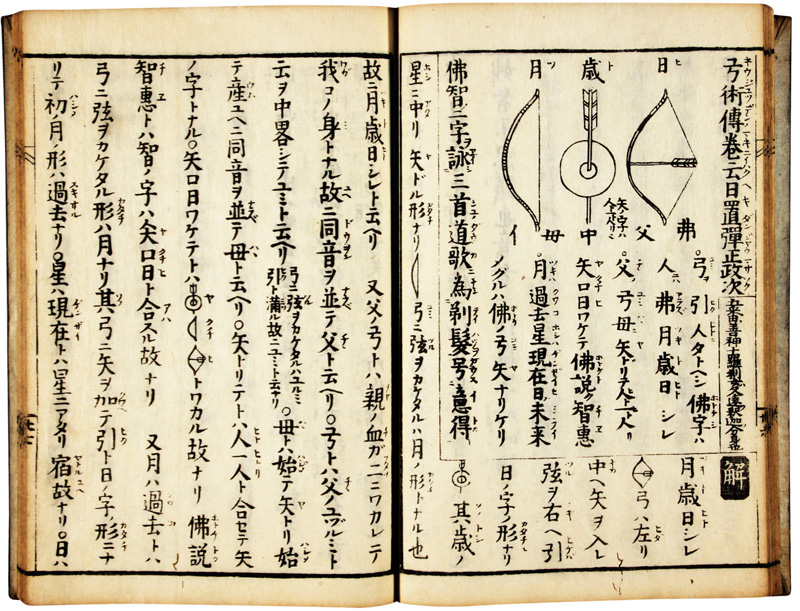 弓術傳巻ニ云日置彈正政次
日 歳 月
弗 父 中 母 イ
弓ヲ引人タトヘシ佛字ハ
人ハ弗月歳日シレ
父ハ弓母ハ矢ドリテ一人リ
矢口日ワケテ佛説ク智惠
月ハ過去星現在日ハ未来
メグルハ佛ノ弓矢ナリケリ
佛智二字ヲ詠三首道歌為剃髪号意得
解
月歳日シレ
弓ハ左リ
中ヘ矢ヲ入レ
弦ヲ右ヘ引
日ノ字ノ形ナリ
其歳ノ
星ニ中リ矢ドル形ナリ 弓ニ弦ヲカケタルハ月ノ形トナル也
故ニ月歳日シレト云ヘリ 又父ノ弓トハ親ノ血ガニニワカレテ
我コノ身トナル故ニ同音ヲ並テ父ト云ヘリ〇弓トハ父ノユヅルミト
云ヲ中畧シテユミト云ヘリ 弓ニ弦ヲカケタルハユルミ引ト満ル故ニユミト云ナリ 〇母ハ始テ矢トリ始
テ産ユヘニ同音ヲ並テ母ト云ヘリ〇矢トリテトハ人一人ト合セテ矢
ノ字トナル〇矢口日ワケテトハ トワカル故ナリ 佛説
智惠トハ智ノ字ハ矢口日ト合スル故ナリ 又月ハ過去トハ
弓ニ弦ヲカケタル形ハ月ナリ其弓ニ矢ヲ加テ引ト日ノ字ノ形ニナ
リテ初月ノ形ハ過去ナリ〇星ハ現在トハ星ニアタリ宿故ナリ〇日ハ